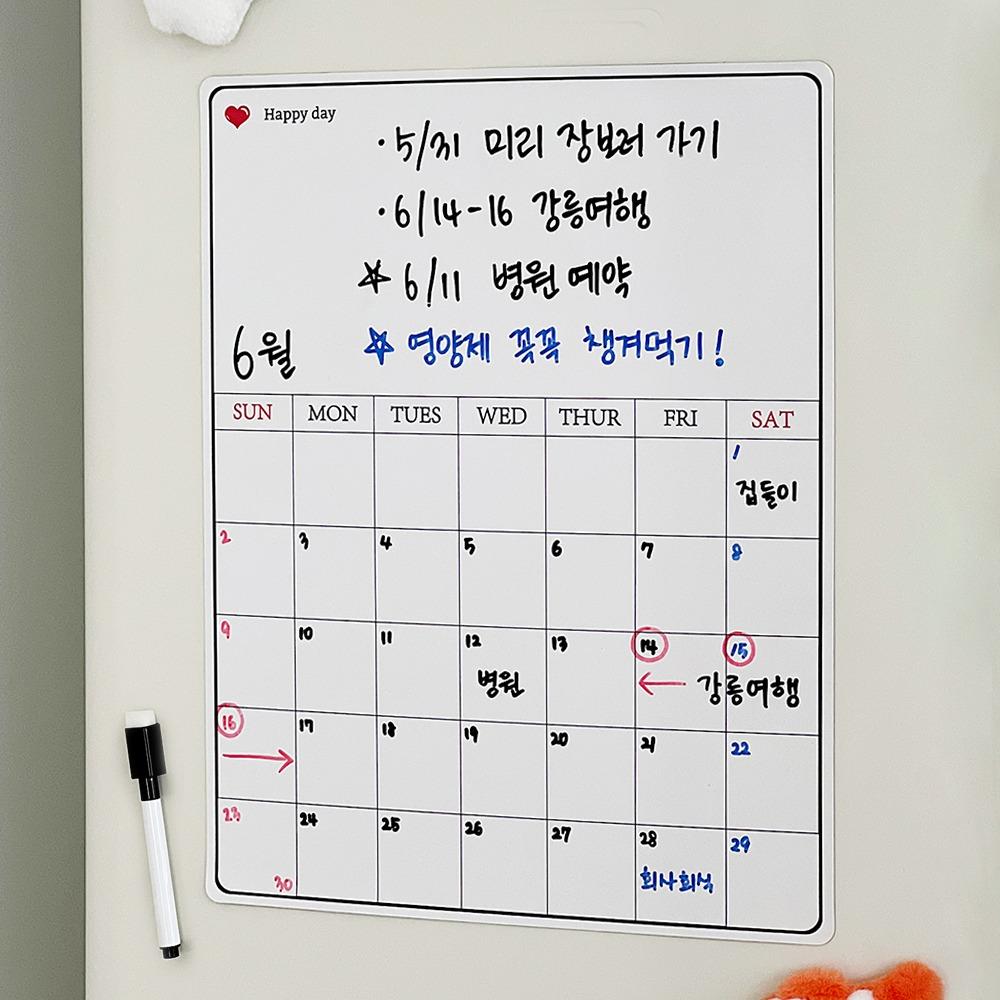 Happy day
· 5/31 미리 장보러 가기
· 6/14-16 강릉여행
☆ 6/11 병원 예약
6월
☆ 영양제 꼭꼭 챙겨먹기!
SUN MON TUES WED THUR FRI SAT
1
집들이
2 3 4 5 6 7 8
9 10 11 12 13 14 15
병원 ← 강릉여행
16 17 18 19 20 21 22
→
23 24 25 26 27 28 29
30 회사회식